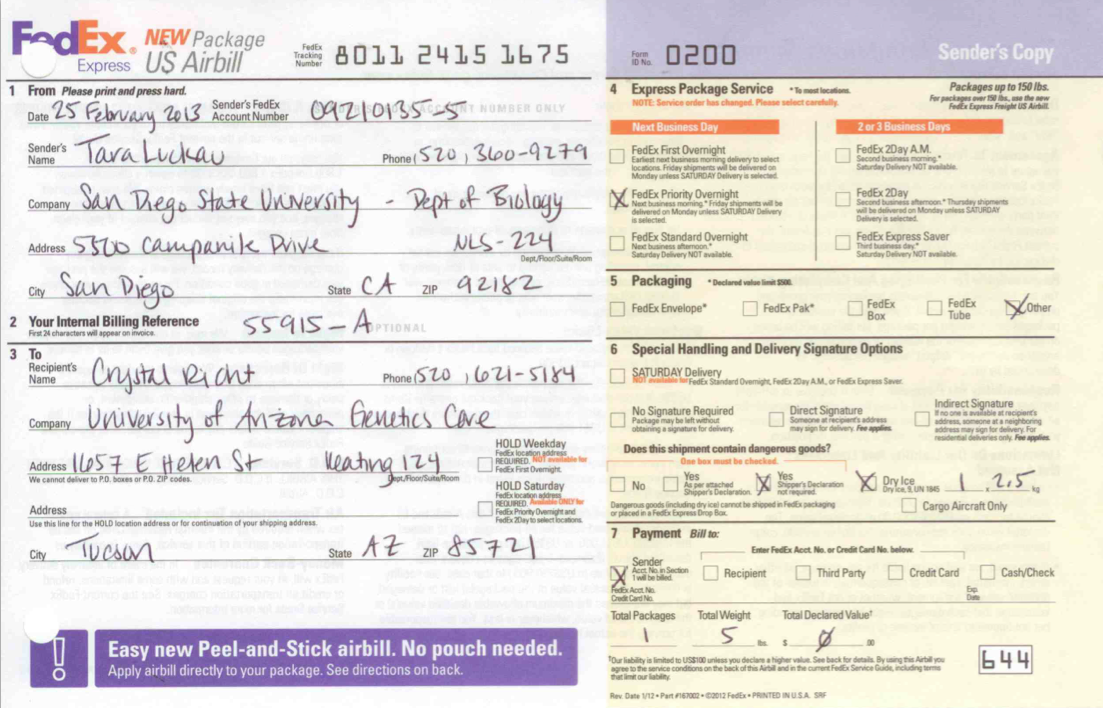 FedEx® NEW Package
Express US Airbill
FedEx Tracking Number 8011 2415 1675
1 From Please print and press hard.
Date 25 February 2013 Sender's FedEx Account Number 09210135-5
Sender's Name Tara Luckau Phone (520) 360-9279
Company San Diego State University - Dept of Biology
Address 5500 Campanile Drive NLS-224
Dept./Floor/Suite/Room
City San Diego State CA ZIP 92182
2 Your Internal Billing Reference 55915-A
First 24 characters will appear on invoice. OPTIONAL
3 To
Recipient's Name Crystal Richt Phone (520) 621-5184
Company University of Arizona Genetics Core
Address 1657 E Helen St Keating 124
We cannot deliver to P.O. boxes or P.O. ZIP codes. Dept./Floor/Suite/Room
HOLD Weekday
FedEx location address
REQUIRED. NOT available for
FedEx First Overnight.
HOLD Saturday
FedEx location address
REQUIRED. Available ONLY for
FedEx Priority Overnight and
FedEx 2Day to select locations.
Address
Use this line for the HOLD location address or for continuation of your shipping address.
City Tucson State AZ ZIP 85721
Easy new Peel-and-Stick airbill. No pouch needed.
Apply airbill directly to your package. See directions on back.
Form ID No. 0200 Sender's Copy
4 Express Package Service * To most locations. Packages up to 150 lbs.
NOTE: Service order has changed. Please select carefully. For packages over 150 lbs., use the new
FedEx Express Freight US Airbill.
Next Business Day
FedEx First Overnight
Earliest next business morning delivery to select
locations. Friday shipments will be delivered on
Monday unless SATURDAY Delivery is selected.
X FedEx Priority Overnight
Next business morning.* Friday shipments will be
delivered on Monday unless SATURDAY Delivery
is selected.
FedEx Standard Overnight
Next business afternoon.*
Saturday Delivery NOT available.
2 or 3 Business Days
FedEx 2Day A.M.
Second business morning.*
Saturday Delivery NOT available.
FedEx 2Day
Second business afternoon.* Thursday shipments
will be delivered on Monday unless SATURDAY
Delivery is selected.
FedEx Express Saver
Third business day.*
Saturday Delivery NOT available.
5 Packaging * Declared value limit $500.
FedEx Envelope* FedEx Pak* FedEx Box FedEx Tube X Other
6 Special Handling and Delivery Signature Options
SATURDAY Delivery
NOT available for FedEx Standard Overnight, FedEx 2Day A.M., or FedEx Express Saver.
No Signature Required
Package may be left without
obtaining a signature for delivery.
Direct Signature
Someone at recipient's address
may sign for delivery. Fee applies.
Indirect Signature
If no one is available at recipient's
address, someone at a neighboring
address may sign for delivery. For
residential deliveries only. Fee applies.
Does this shipment contain dangerous goods?
One box must be checked.
No
Yes
As per attached
Shipper's Declaration.
X Yes
Shipper's Declaration
not required.
X Dry Ice
Dry Ice, 9, UN 1845 1 x 2.5 kg
Dangerous goods (including dry ice) cannot be shipped in FedEx packaging
or placed in a FedEx Express Drop Box.
Cargo Aircraft Only
7 Payment Bill to:
Enter FedEx Acct. No. or Credit Card No. below.
X Sender
Acct. No. in Section
1 will be billed.
Recipient Third Party Credit Card Cash/Check
FedEx Acct. No.
Credit Card No.
Exp. Date
Total Packages Total Weight Total Declared Value†
1 5 lbs. $ 0 .00
†Our liability is limited to US$100 unless you declare a higher value. See back for details. By using this Airbill you
agree to the service conditions on the back of this Airbill and in the current FedEx Service Guide, including terms
that limit our liability.
644
Rev. Date 1/12 • Part #167002 • ©2012 FedEx • PRINTED IN U.S.A. SRF